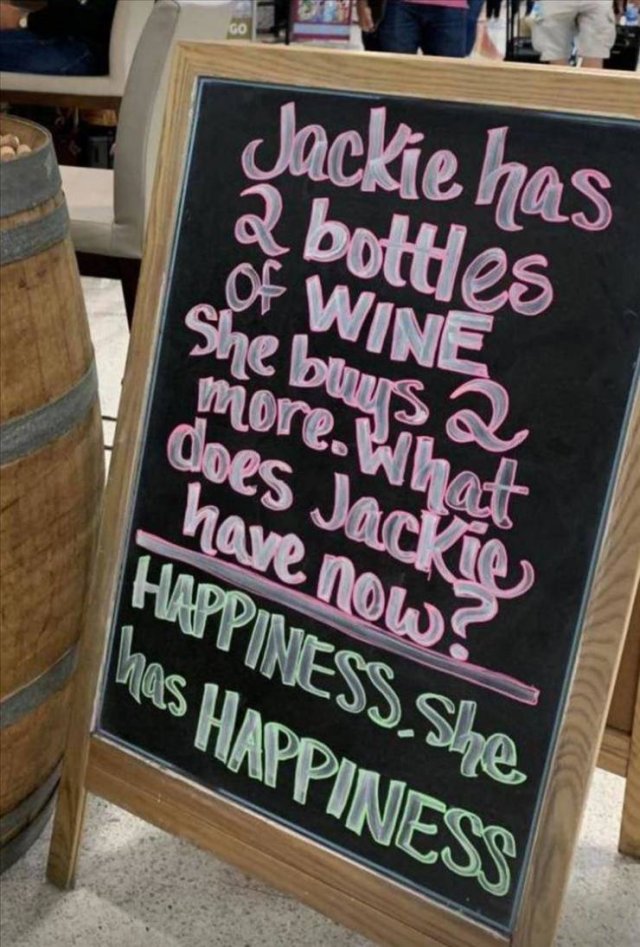 GO
Jackie has
2 bottles
OF WINE
She buys 2
more. What
does Jackie
have now?
HAPPINESS. She
has HAPPINESS